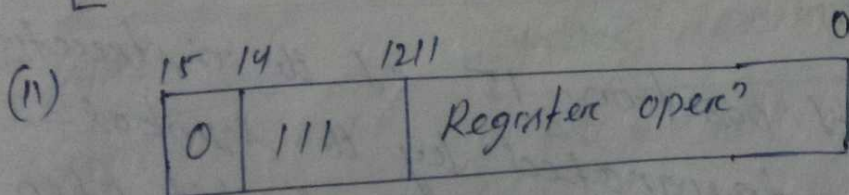 15 14 1211 0
(11) 0 111 Register oper?